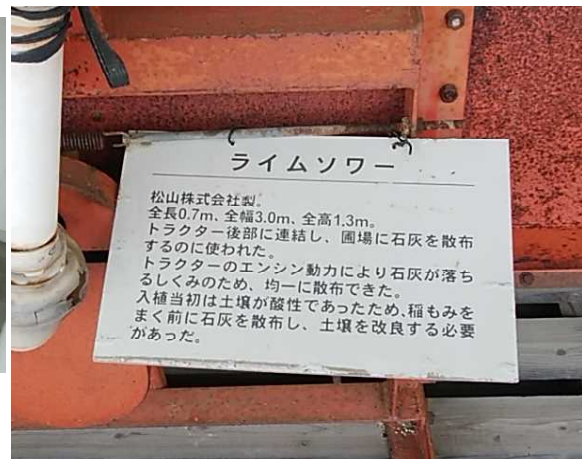 ライムソワー
松山株式会社製。
全長0.7m、全幅3.0m、全高1.3m。
トラクター後部に連結し、圃場に石灰を散布
するのに使われた。
トラクターのエンジン動力により石灰が落ち
るしくみのため、均一に散布できた。
入植当初は土壌が酸性であったため、稲もみを
まく前に石灰を散布し、土壌を改良する必要
があった。